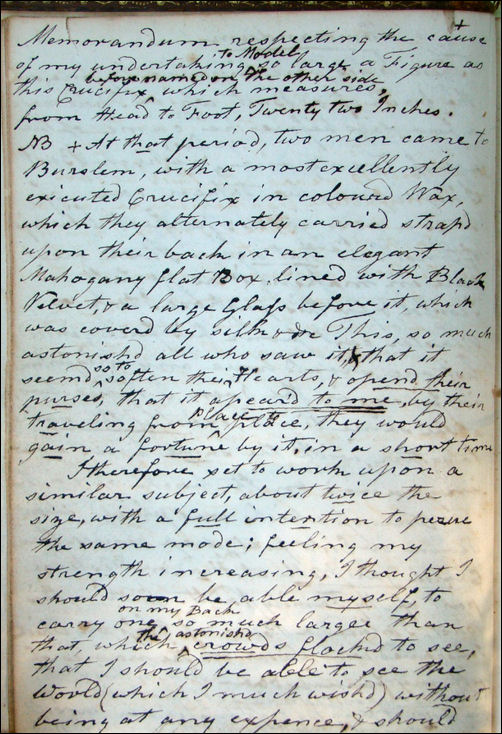 Memorandum respecting the cause +
of my undertaking ^to Model so large a Figure as
this Crucifix ^before named on the other side which measures,
from Head to Foot, Twenty two Inches.
NB + At that period, two men came to
Burslem, with a most excellently
executed Crucifix in coloured Wax,
which they alternately carried strapd
upon their back in an elegant
Mahogany flat Box, lined with Black
Velvet, & a large Glass before it, which
was coverd by silk &c This, so much
astonishd all who saw it, & that it
seemd ^so to soften their Hearts, & opend their
purses, that it apeard to me, by their
traveling from ^Place to place, they would
gain a fortune by it, in a short time
I therefore set to work upon a
similar subject, about twice the
size, with a full intention to persue
the same mode; feeling my
strength increasing, I thought I
should soon be able myself, to
carry one ^on my Back, so much larger than
that, which ^the astonishd crowds flockd to see,
that I should be able to see the
World (which I much wishd) without
being at any expence, & should